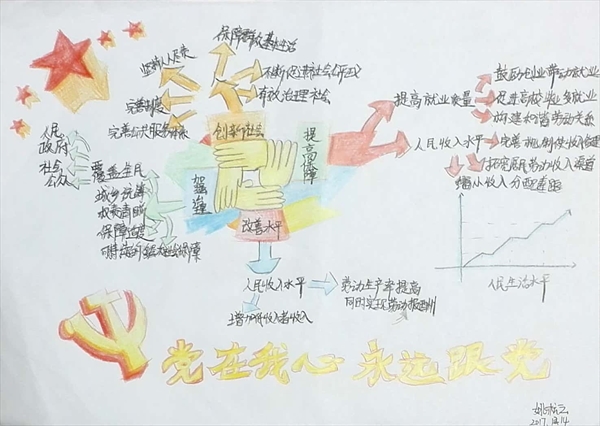 保障群众基本生活
坚持人人尽责
不断促进社会公平正义
完善制度
有效治理社会
完善公共服务体系
创新社会
提高保障
加强建
改善水平
人民
政府
社会
公众
覆盖全民
城乡统筹
权责清晰
保障适度
可持续的多层次社会保障
提高就业质量
鼓励创业带动就业
促进高校毕业多就业
构建和谐劳动关系
人民收入水平
完善机制使收入合理
拓宽居民劳动收入渠道
缩小收入分配差距
人民生活水平
人民收入水平
劳动生产率提高
同时实现劳动报酬
增加低收入者收入
党在我心 永远跟党
2017.12.14